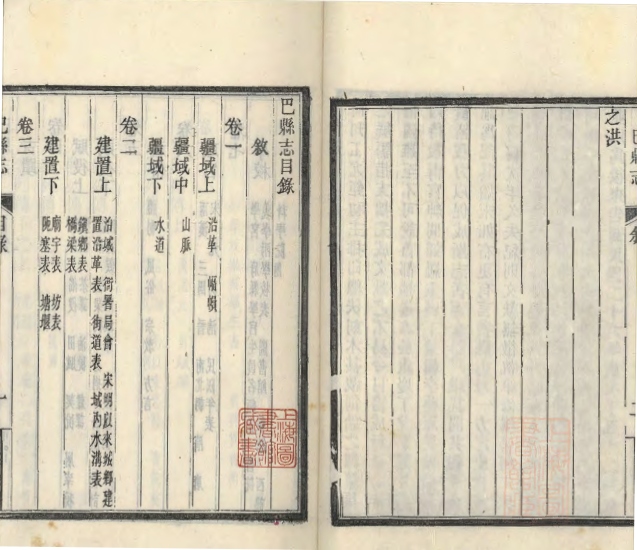 之洪
巴縣志
巴縣志目錄
敘
卷一
疆域上 沿革 幅㡧
疆域中 山脈
疆域下 水道
卷二
建置上 治城 衙署局會 宋明以來城鄉建
置沿革表 街道表 城內水溝表
鎮鄉表
橋梁表
建置下 廟宇表 坊表
阨塞表 塘堰
卷三
巴縣志
目錄
上海圖
書館
藏書